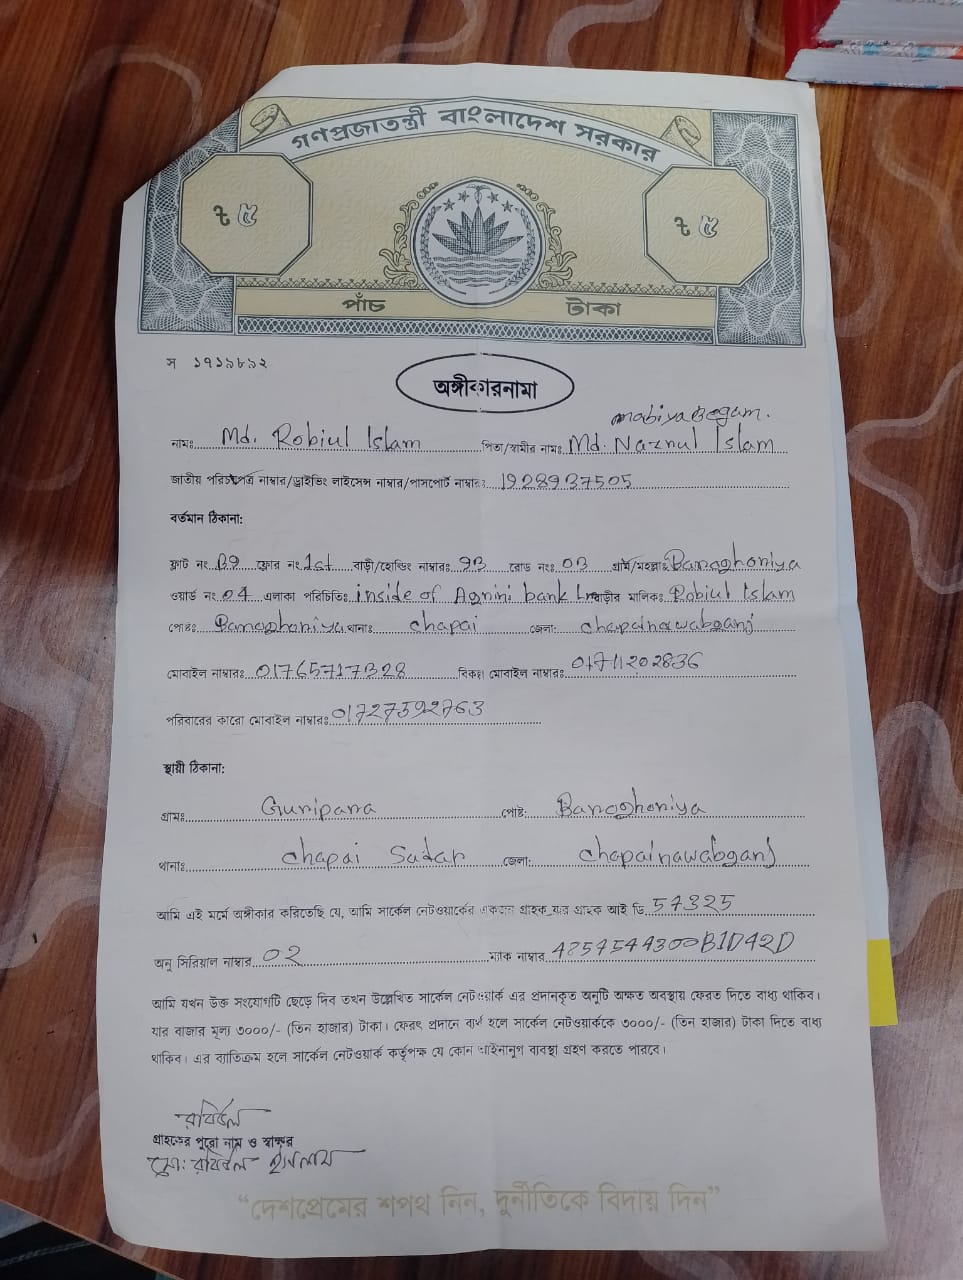 গণপ্রজাতন্ত্রী বাংলাদেশ সরকার
৳ ৫ ৳ ৫
পাঁচ টাকা
স ১৭১৯৮৯২
অঙ্গীকারনামা
Mabiya Begam.
নামঃ Md. Robiul Islam পিতা/স্বামীর নামঃ Md. Naznul Islam
জাতীয় পরিচয়পত্র নাম্বার/ড্রাইভিং লাইসেন্স নাম্বার/পাসপোর্ট নাম্বারঃ 1928937505
বর্তমান ঠিকানা:
ফ্লাট নং B9 ফ্লোর নং 1st বাড়ী/হোল্ডিং নাম্বারঃ 93 রোড নংঃ 03 গ্রাম/মহল্লাঃ Baroghoniya
ওয়ার্ড নং 04 এলাকা পরিচিতিঃ inside of Agnini bank বাড়ীর মালিকঃ Robiul Islam
পোষ্টঃ Baroghoniya থানাঃ chapai জেলা: chapainawabganj
মোবাইল নাম্বারঃ 01765717328 বিকল্প মোবাইল নাম্বারঃ 01711202836
পরিবারের কারো মোবাইল নাম্বারঃ 01727592763
স্থায়ী ঠিকানা:
গ্রামঃ Gunipara পোষ্ট: Baroghoniya
থানাঃ chapai Sadar জেলা: chapainawabganj
আমি এই মর্মে অঙ্গীকার করিতেছি যে, আমি সার্কেল নেটওয়ার্কের একজন গ্রাহক যার গ্রাহক আই ডি 57325
অনু সিরিয়াল নাম্বার 02 ম্যাক নাম্বার 4857544300B1D42D
আমি যখন উক্ত সংযোগটি ছেড়ে দিব তখন উল্লেখিত সার্কেল নেটওয়ার্ক এর প্রদানকৃত অনুটি অক্ষত অবস্থায় ফেরত দিতে বাধ্য থাকিব।
যার বাজার মূল্য ৩০০০/- (তিন হাজার) টাকা। ফেরৎ প্রদানে ব্যর্থ হলে সার্কেল নেটওয়ার্ককে ৩০০০/- (তিন হাজার) টাকা দিতে বাধ্য
থাকিব। এর ব্যতিক্রম হলে সার্কেল নেটওয়ার্ক কর্তৃপক্ষ যে কোন আইনানুগ ব্যবস্থা গ্রহণ করতে পারবে।
রবিউল
গ্রাহকের পুরো নাম ও স্বাক্ষর
মো: রবিউল ইসলাম
“দেশপ্রেমের শপথ নিন, দুর্নীতিকে বিদায় দিন”